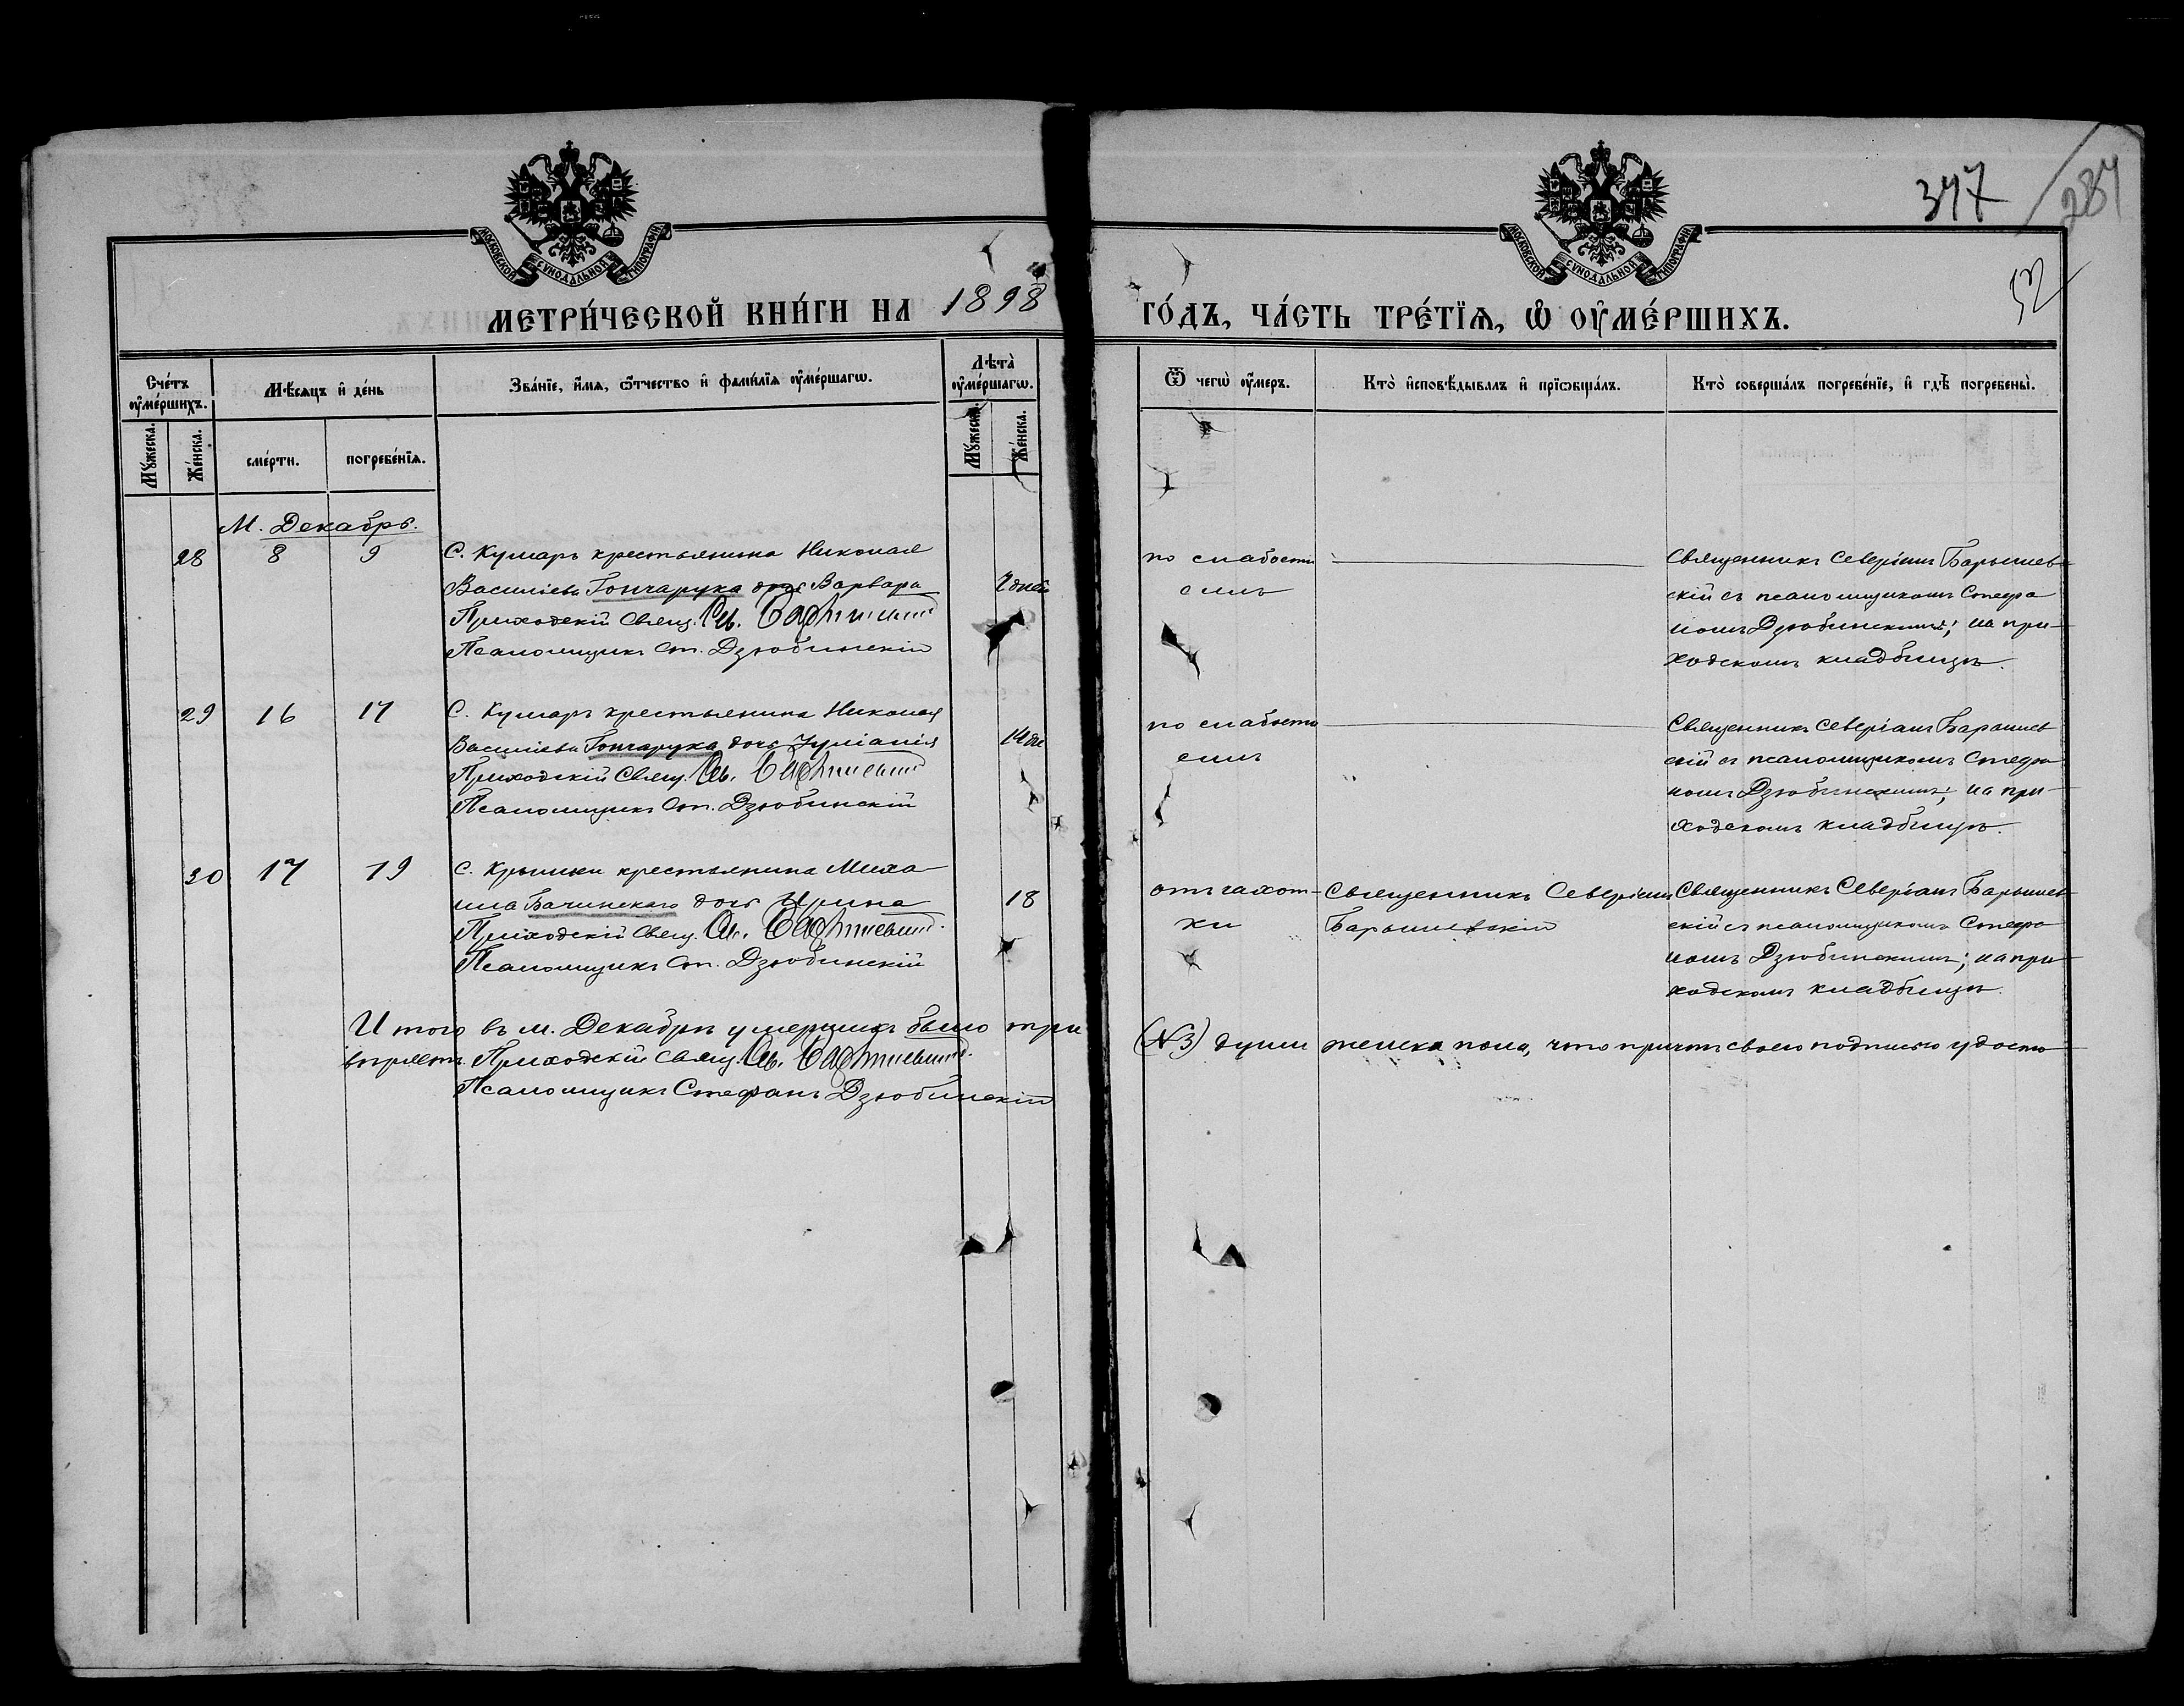 МОСКОВСКОЙ СУНОДАЛЬНОЙ ТИПОГРАФІИ
МОСКОВСКОЙ СУНОДАЛЬНОЙ ТИПОГРАФІИ
347
287
52
МЕТРИ́ЧЕСКОЙ КНИ́ГИ НА 1898 ГО́ДЪ, ЧА́СТЬ ТРЕ́ТЇѦ, Ѽ ОУ҆МЕ́РШИХЪ.
Сче́тъ оу҆ме́ршихъ.
Мꙋ́жеска.
Же́нска.
Мѣ́сяцъ и҆ де́нь
сме́рти.
погребе́нїѧ.
Зва́нїе, и҆́мѧ, ѻ҆́тчество и҆ фами́лїѧ оу҆ме́ршагѡ.
Лѣ́та̀ оу҆ме́ршагѡ.
Мꙋ́жеска.
Же́нска.
Ѿ чегѡ̀ оу҆́меръ.
Кто̀ и҆сповѣ́дывалъ и҆ прїѡбща́лъ.
Кто̀ соверша́лъ погребе́нїе, и҆ гдѣ̀ погребены̀.
М. Декабрь.
28 8 9 С. Кумаръ крестьянина Николая
Василіева Гончарука дочь Варвара
Приходскій Свящ. Св.
Псаломщикъ Ст. Дзюбинскій
7 дней
по слабости
силъ
Священникъ Северіанъ Барышев-
скій съ псаломщикомъ Стефа
номъ Дзюбинскимъ; на при-
ходскомъ кладбищѣ.
29 16 17 С. Кумаръ крестьянина Николая
Василіева Гончарука дочь Іуліанія
Приходскій Свящ.
Псаломщикъ Ст. Дзюбинскій
14 дн
по слабости
силъ
Священникъ Северіанъ Барышев
скій съ псаломщикомъ Стефа
номъ Дзюбинскимъ; на при-
ходскомъ кладбищѣ.
30 17 19 С. крестьянина Миха
ила Бачинскаго дочь Ирина
Приходскій Свящ.
Псаломщикъ Ст. Дзюбинскій
18
отъ чахот-
ки
Священникъ Северіанъ
Барышевскій
Священникъ Северіанъ Барышев
скій съ псаломщикомъ Стефа
номъ Дзюбинскимъ; на при
ходскомъ кладбищѣ.
Итого въ м. Декабрѣ умершихъ было три (№3) души женска пола, что причтъ своею подписью удосто
вѣряетъ. Приходскій Свящ.
Псаломщикъ Стефанъ Дзюбинскій